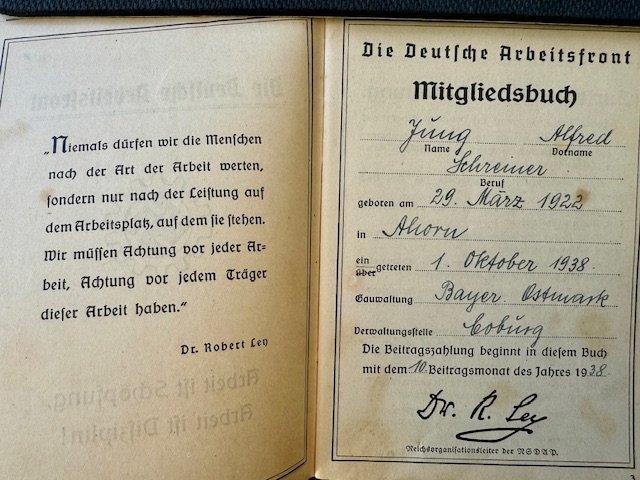 „Niemals dürfen wir die Menschen
nach der Art der Arbeit werten,
sondern nur nach der Leistung auf
dem Arbeitsplatz, auf dem sie stehen.
Wir müssen Achtung vor jeder Ar-
beit, Achtung vor jedem Träger
dieser Arbeit haben.“
Dr. Robert Ley
Die Deutsche Arbeitsfront
Mitgliedsbuch
Jung Alfred
Name Vorname
Schreiner
Beruf
geboren am 29. März 1922
in Ahorn
ein
über getreten 1. Oktober 1938.
Gauwaltung Bayer. Ostmark
Verwaltungsstelle Coburg
Die Beitragszahlung beginnt in diesem Buch
mit dem 10. Beitragsmonat des Jahres 1938.
Dr. R. Ley
Reichsorganisationsleiter der NSDAP.
3